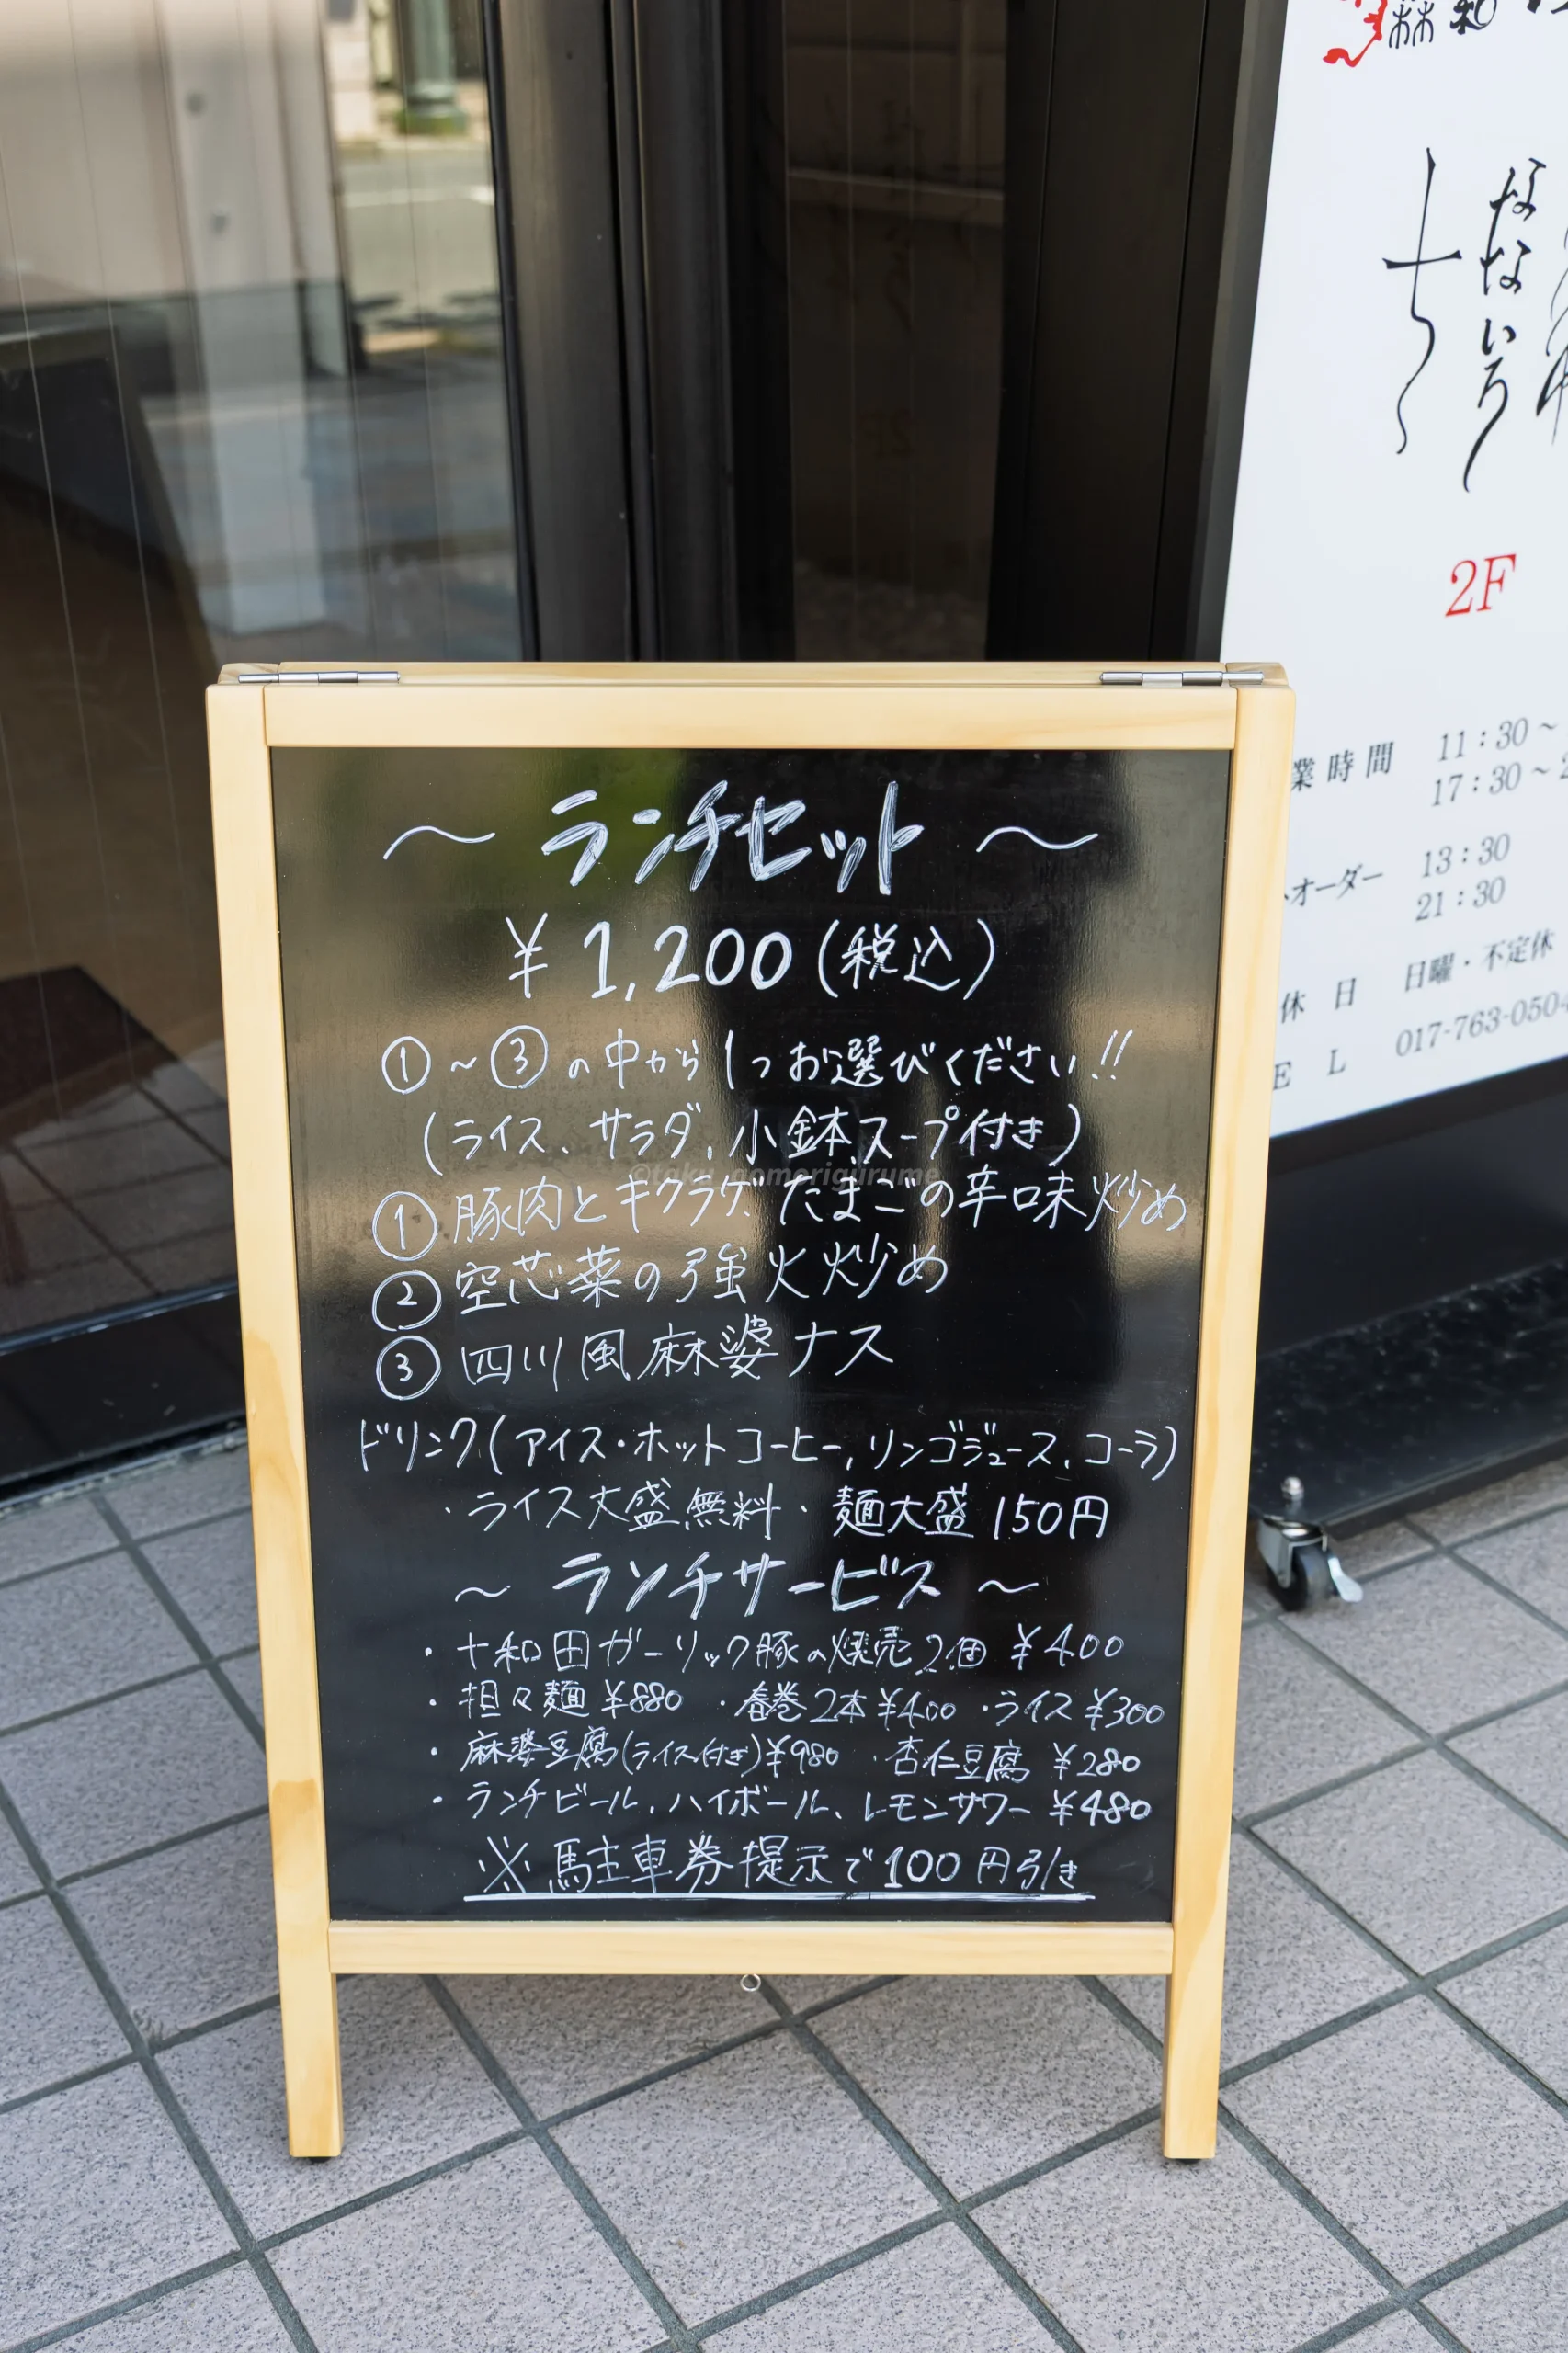 ～ ランチセット ～
¥1,200(税込)
①～③の中から1つお選びください!!
(ライス、サラダ、小鉢、スープ付き)
①豚肉とキクラゲたまごの辛味炒め
②空芯菜の強火炒め
③四川風麻婆ナス
ドリンク(アイス・ホットコーヒー、リンゴジュース、コーラ)
・ライス大盛無料・麺大盛150円
～ ランチサービス ～
・十和田ガーリック豚の焼売2個 ¥400
・担々麺 ¥880 ・春巻2本 ¥400 ・ライス ¥300
・麻婆豆腐(ライス付き)¥980 ・杏仁豆腐 ¥280
・ランチビール、ハイボール、レモンサワー ¥480
※駐車券提示で100円引き
©taku_aomorigurume
なないろ
2F
業時間 11:30～
17:30～2
トオーダー 13:30
21:30
休日 日曜・不定休
EL 017-763-0504